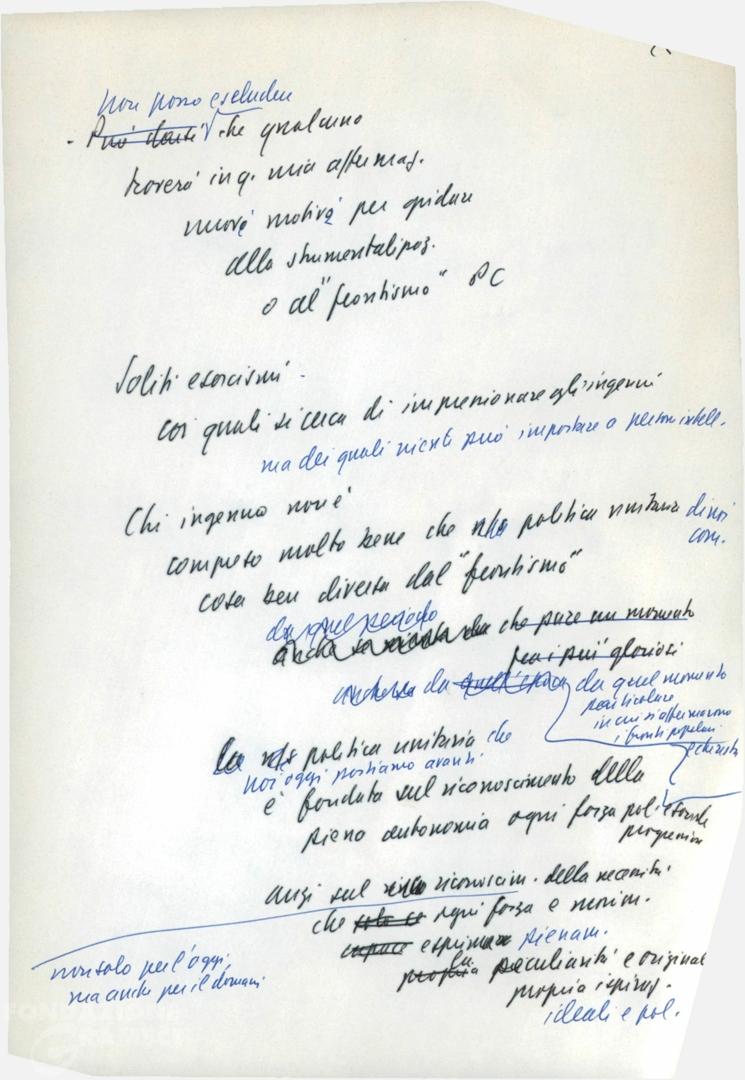 non posso escludere
- Può darsi che qualcuno
troverà in q. mia affermaz.
nuovi motivi per gridare
alla strumentalizzaz.
o al "frontismo" PC
Soliti esorcismi.
coi quali si cerca di impressionare gli ingenui
ma dei quali niente può importare a persone intell.
Chi ingenuo non è
compreso molto bene che politica unitaria di noi
com.
cosa ben diversa dal "frontismo"
da quel periodo
che pure un momento
fra i più gloriosi
anche se da quell'epoca da quel momento
particolare
in cui si affermarono
i fronti popolari
e che resta
La politica unitaria che
noi oggi portiamo avanti
è fondata sul riconoscimento della
piena autonomia ogni forza pol. e sociale
progressiva
anzi sul riconoscim. della necessità
che ogni forza e movim.
capace esprimere pienam.
non solo per l'oggi
ma anche per il domani
propria la peculiarità e original.
propria ispiraz.
ideali e pol.
FONDAZIONE
GRAMSCI